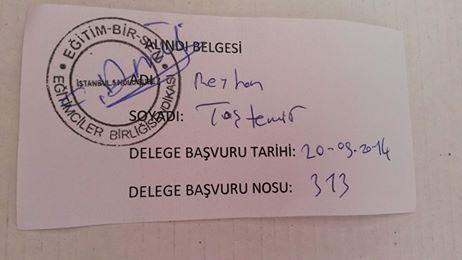 ALINDI BELGESİ
EĞİTİM-BİR-SEN
EĞİTİMCİLER BİRLİĞİ SENDİKASI
ADI: Reyhan
SOYADI: Taştemir
DELEGE BAŞVURU TARİHİ: 20-09.2014
DELEGE BAŞVURU NOSU: 313